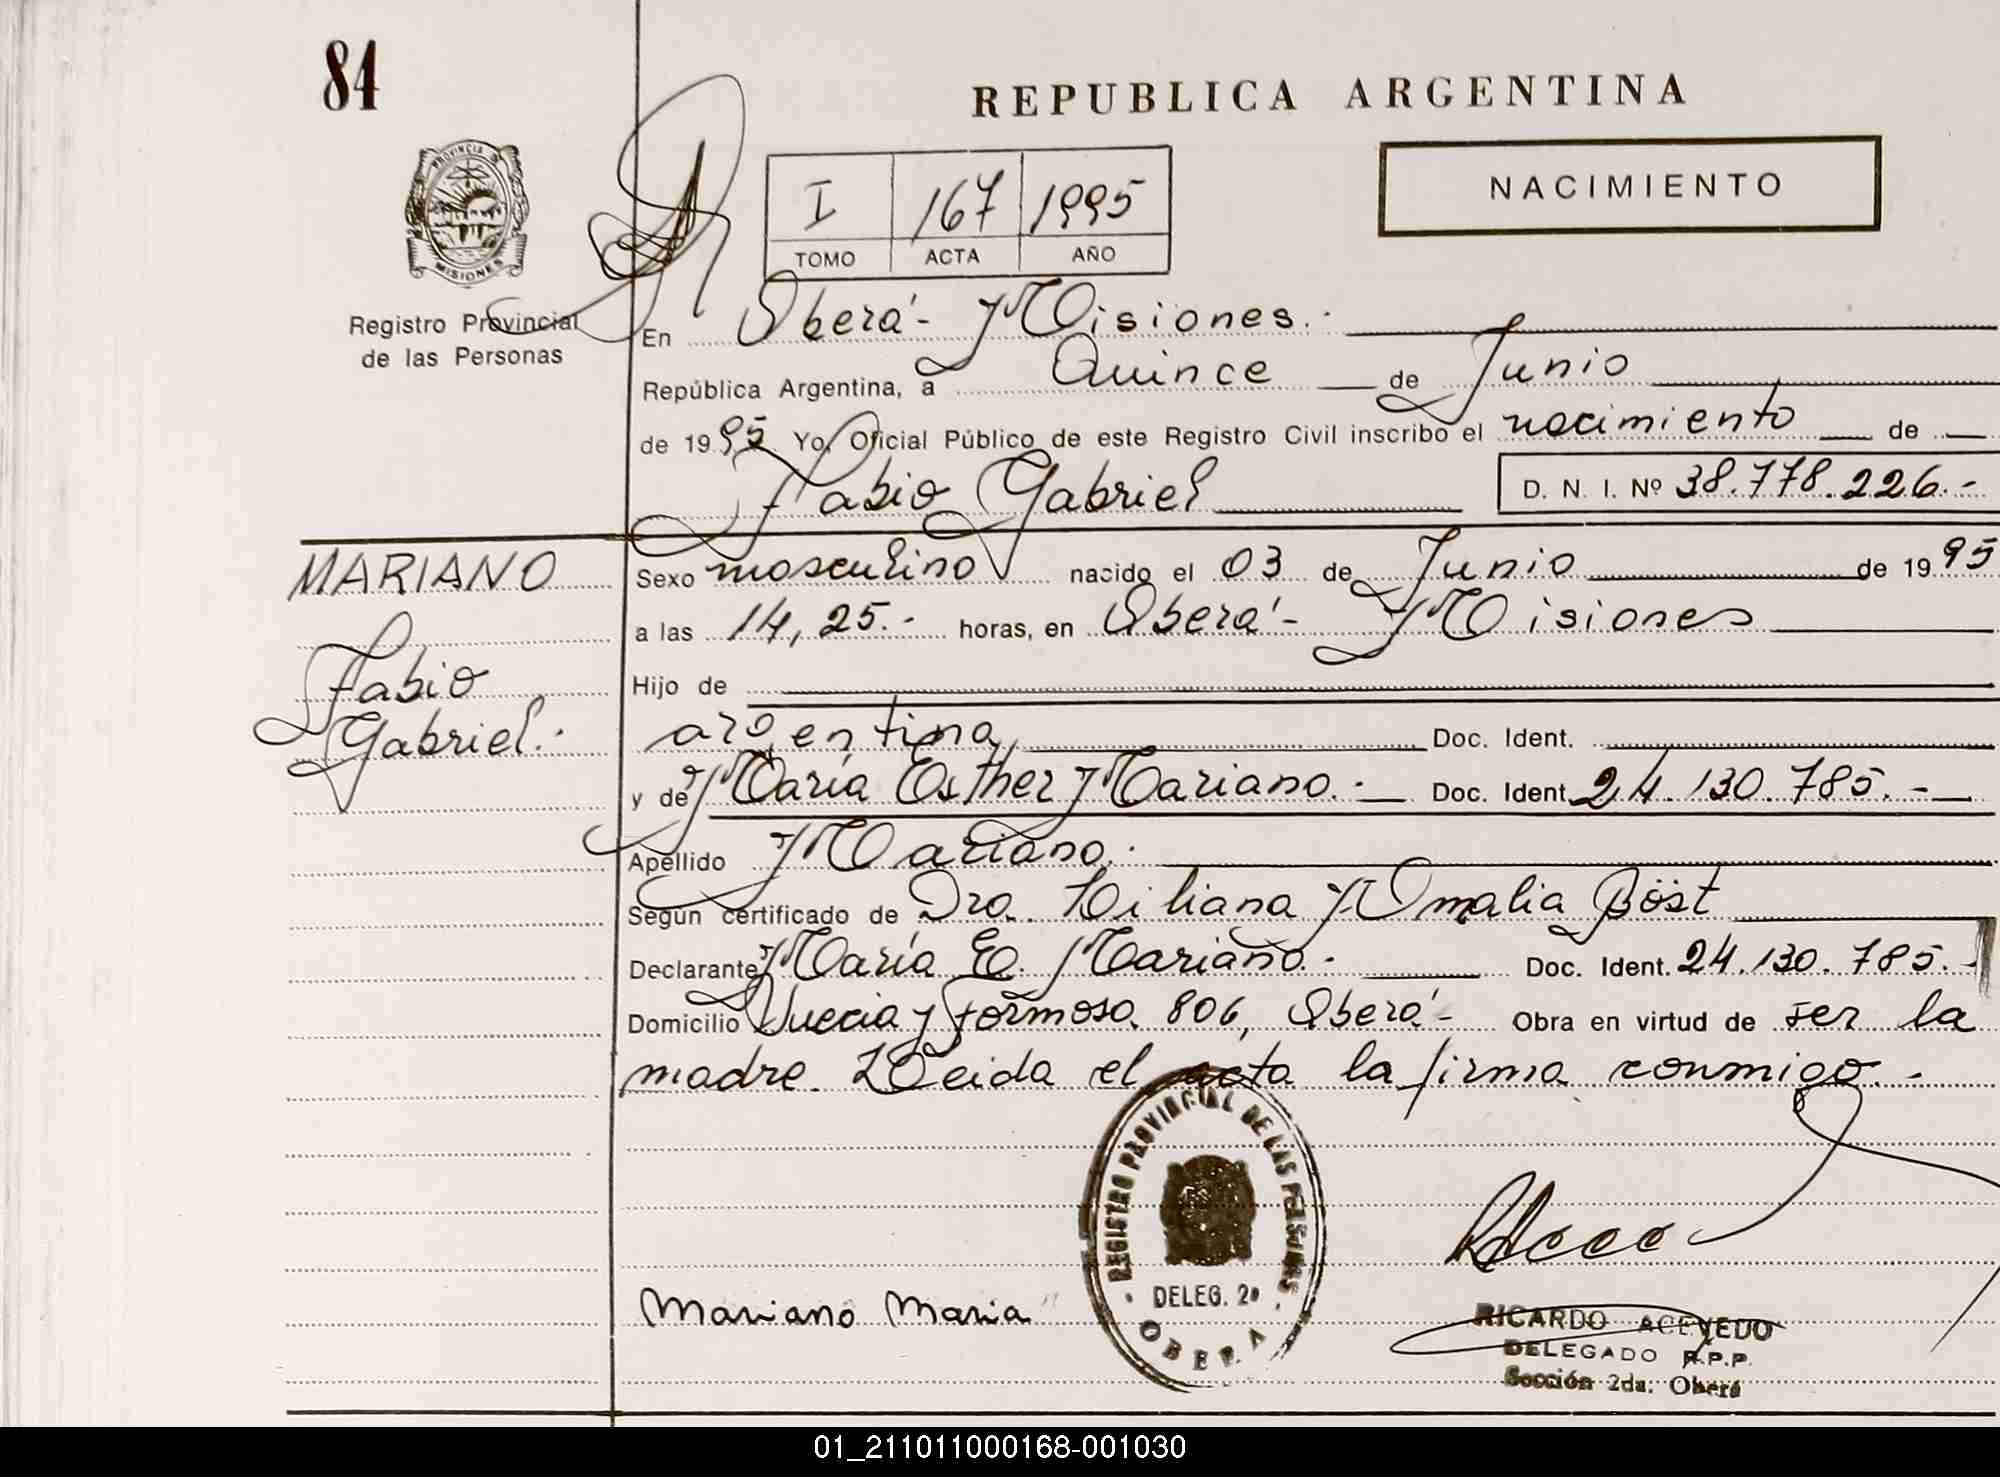 84
REPUBLICA ARGENTINA
PROVINCIA DE
MISIONES
I 167 1995
TOMO ACTA AÑO
NACIMIENTO
Registro Provincial
de las Personas
En Oberá - Misiones.-
República Argentina, a Quince de Junio
de 1995 Yo, Oficial Público de este Registro Civil inscribo el nacimiento de
Fabio Gabriel D. N. I. Nº 38.778.226.-
MARIANO
Fabio
Gabriel.-
Sexo masculino nacido el 03 de Junio de 1995
a las 14,25.- horas, en Oberá - Misiones
Hijo de
argentina Doc. Ident.
y de María Esther Mariano.- Doc. Ident. 24.130.785.-
Apellido Mariano.-
Según certificado de Dra. Liliana Amalia Böst
Declarante María E. Mariano.- Doc. Ident. 24.130.785.-
Domicilio Suecia y Formosa 806, Oberá - Obra en virtud de ser la
madre. Leida el acta la firma conmigo.-
REGISTRO PROVINCIAL DE LAS PERSONAS
DELEG. 2ª
OBERA
Mariano Maria
RICARDO ACEVEDO
DELEGADO R.P.P.
Sección 2da. Oberá
01_211011000168-001030